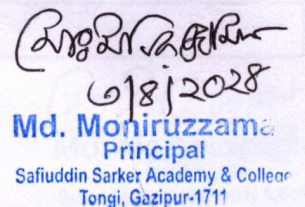 ৩/৪/2024
Md. Moniruzzama
Principal
Safiuddin Sarker Academy & College
Tongi, Gazipur-1711